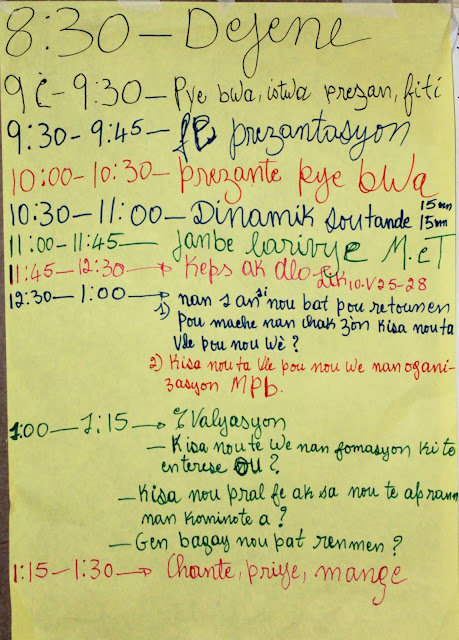 8:30 — Dejene
9è - 9:30 — Pye bwa, istwa prezan, fiti
9:30 - 9:45 — fè prezantasyon
10:00 - 10:30 — prezante pye bwa
10:30 - 11:00 — Dinamik soutande 15 mn 15 mn
11:00 - 11:45 — Janbe larivyè M.eT
11:45 - 12:30 → Keps ak dlo Lik 10.V25-28
12:30 - 1:00 → 1) nan 2 an si nou bat pou retounen
pou mache nan chak zòn kisa nou ta
vle pou nou wè?
2) Kisa nou ta vle pou nou we nan ogani-
zasyon MPb.
1:00 — 1:15 → eValyasyon
— Kisa nou te we nan fomasyon ki te
enterese ou?
— Kisa nou pral fe ak sa nou te aprann
nan kominote a?
— Gen bagay nou pat renmen?
1:15 - 1:30 → Chante, priye, mange